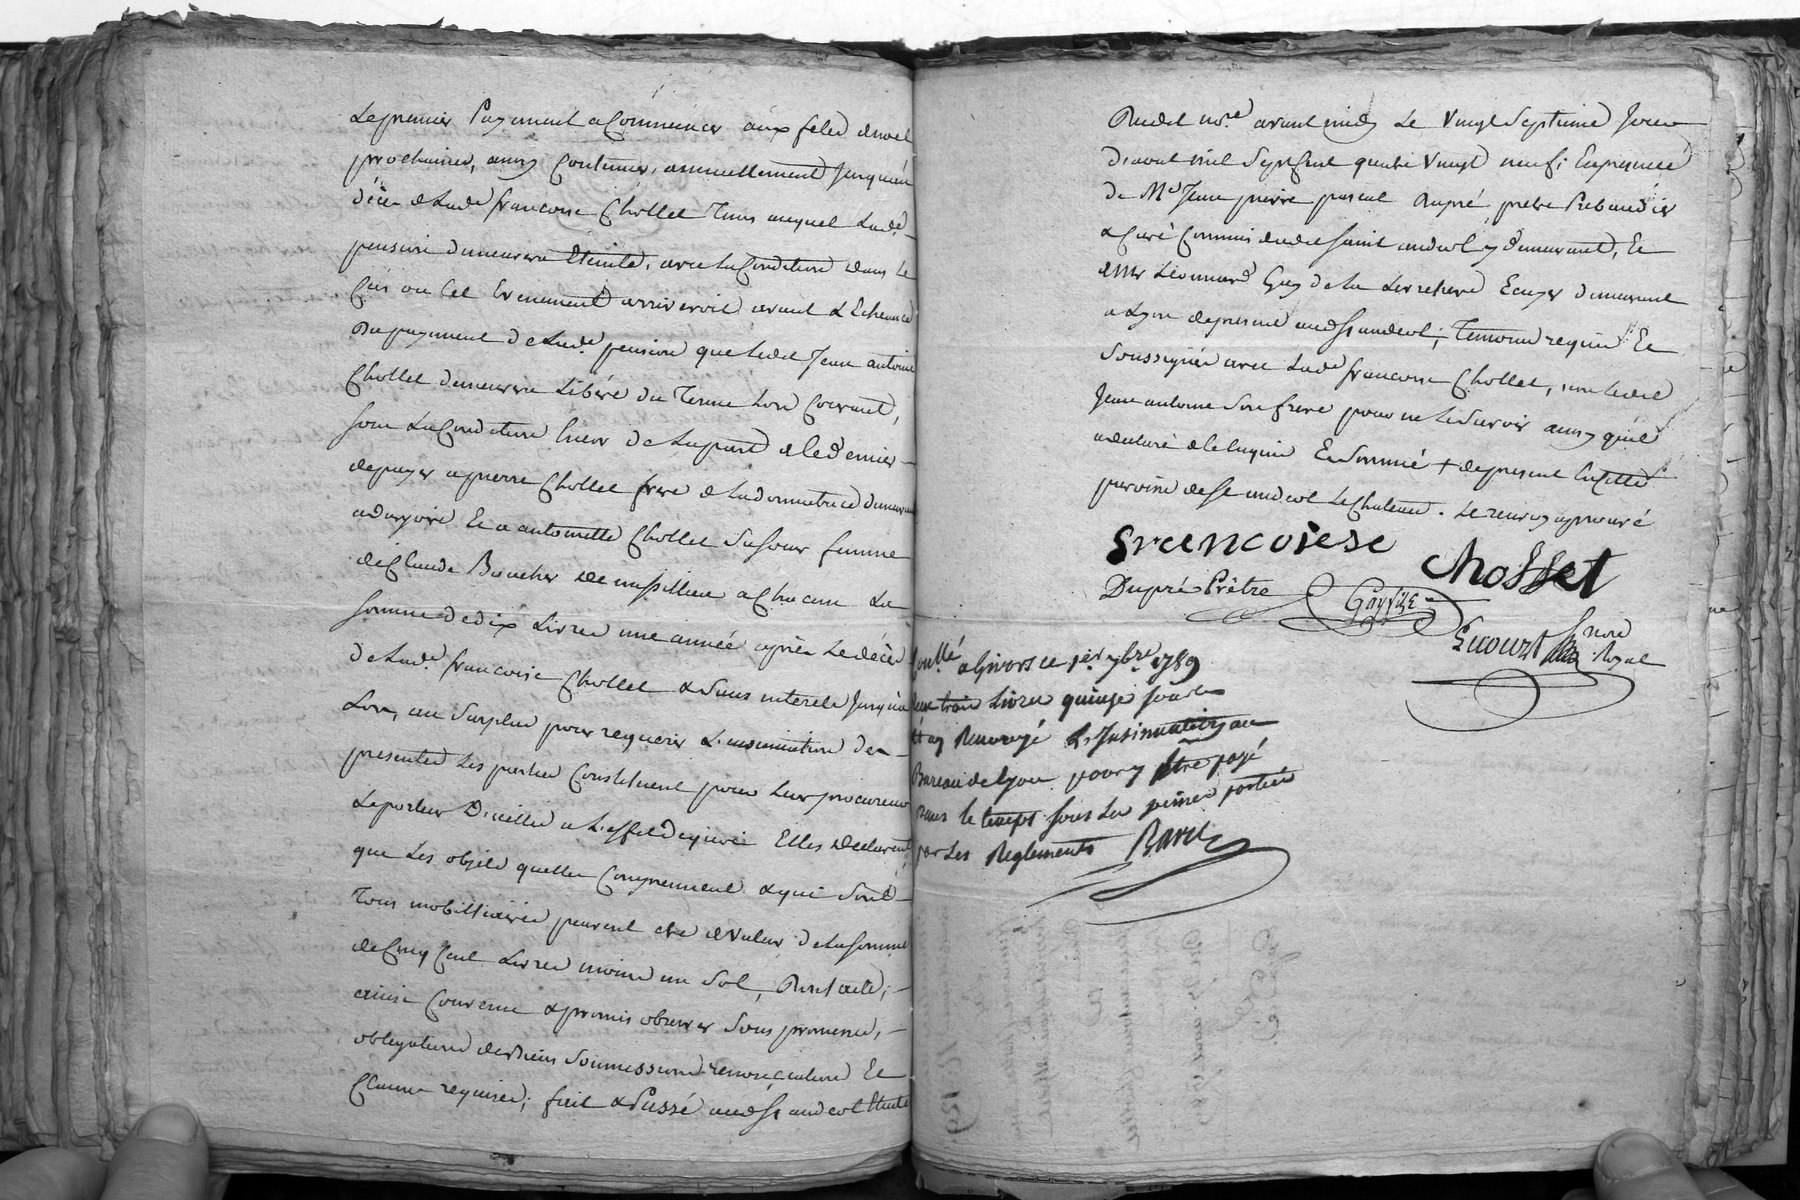 Le premier Payement a Commencer aux fetes de noel
prochaines, ainsy Continuer, annuellement Jusquau
décès de Lade francoise Chollet Tems auquel Lade
pension demeurera Eteinte, avec La Condition dans Le
Cas ou Cet Evenement arriveroit avant L'Echeance
Du payement de Lade pension que Ledit Jean antoine
Chollet demeurera Libéré du Terme Lors Courant,
sous La Condition de La part de le dernier
de payer a pierre Chollet frere de La donnatrice demeurant
a dargoire Et a antoinette Chollet Sa soeur femme
de Claude Boucher de a Chacun La
somme de dix Livres une année après Le décès
de Lade francoise Chollet & Sans interets Jusqu'a
Lors, au Surplus pour requerir L'insinuation des
presentes Les parties Constituent pour Leur procureur
Le porteur D'icelles a L'effet de quoi Elles declarent
que Les objets quelles Comprennent & qui Sont
Tous mobilliaires peuvent etre de valeur de La somme
de Cinq Cent Livres moins un Sol, Dont acte;
ainsi Convenu & promis observer Sous promesses,
obligations de biens Soumissions renonciations Et
Clauses requises; fait & Passé audt St andeol Etude
Dudit nore avant midy Le Vingt Septieme Jour
D'aout mil Sept Cent quatre Vingt neuf; En presence
de Me Jean pierre pascal Dupré, pretre Prebendier
& Curé Commis dudit saint andeol y demeurant, Et
de Mr Léonnard Gay de La Ecuyer demeurant
a Lyon de present audt St andeol; Temoins requis Et
Soussignés avec Lade francoise Chollet, non Ledit
Jean antoine Son frere pour ne Le Savoir ainsy qu'il
a declaré de le Enquis Et Sommé + de present En Cette
paroisse de St andeol Le Chateau. Le renvoy approuvé
francoiese Chosset
Dupré Prêtre Gay fils
nore Royal
Conllé a Givors ce 1er 7bre 1789
trois Livres quinze sous
Et ay Renvoyé L'Insinuation au
Bureau de Lyon pour y être payé
Dans le temps sous Les peines portées
par Les Reglements